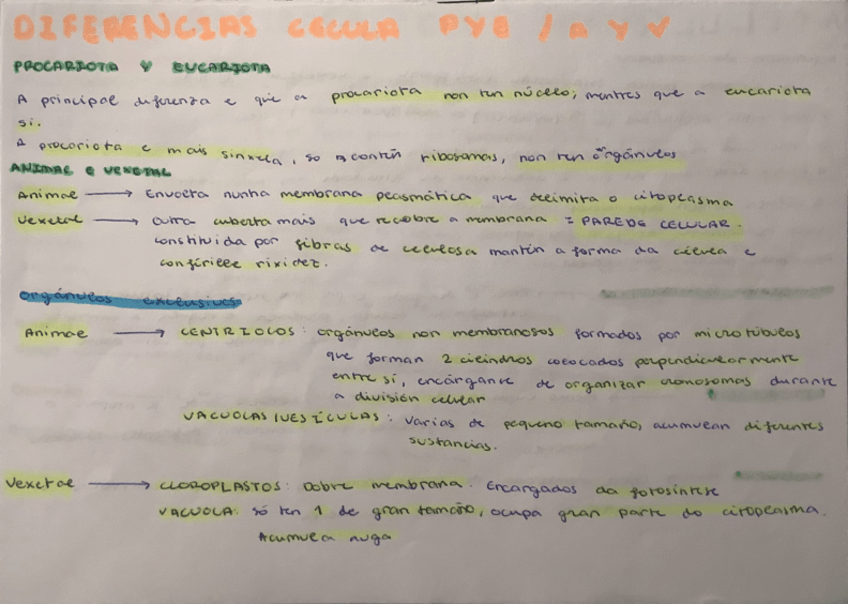 DIFERENCIAS CELULA PYE / A Y V
PROCARIOTA Y EUCARIOTA
A principal diferenza e que a procariota non ten núcleo; mentres que a eucariota
si.
A procariota e mais sinxela, so contén ribosomas, non ten orgánulos
ANIMAL E VEXETAL
Animal → Envolta nunha membrana plasmática que delimita o citoplasma
Vexetal → Outra cuberta mais que recobre a membrana = PAREDE CELULAR.
constituida por fibras de celulosa mantén a forma da célula e
confírelle rixidez.
Orgánulos exclusivos
Animal → CENTRIOLOS: orgánulos non membranosos formados por microtúbulos
que forman 2 cilindros colocados perpendicularmente
entre sí, encárganse de organizar cromosomas durante
a división celular
VACUOLAS/VESÍCULAS: Varias de pequeno tamaño, acumulan diferentes
sustancias.
Vexetal → CLOROPLASTOS: Dobre membrana. Encargados da fotosíntese
VACUOLA: só ten 1 de gran tamaño, ocupa gran parte do citoplasma.
Acumula auga